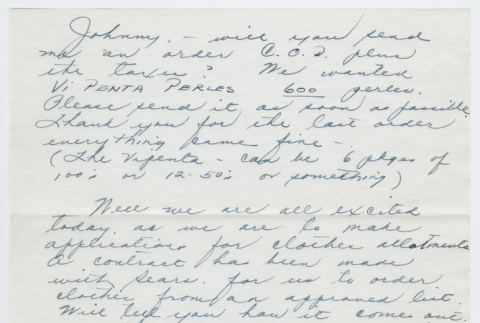 Johnny, - will you send
me an order C.O.D. plus
the taxes? We wanted
Vi-Penta Perles 600 perles.
Please send it as soon as possible.
Thank you for the last order
everything came fine -
(The Vipenta - can be 6 pkges of
100's or 12-50's or something)
Well we are all excited
today as we are to make
applications for clothes allotments
A contract has been made
with Sears. for us to order
clothes from an approved list.
Will tell you how it comes out.